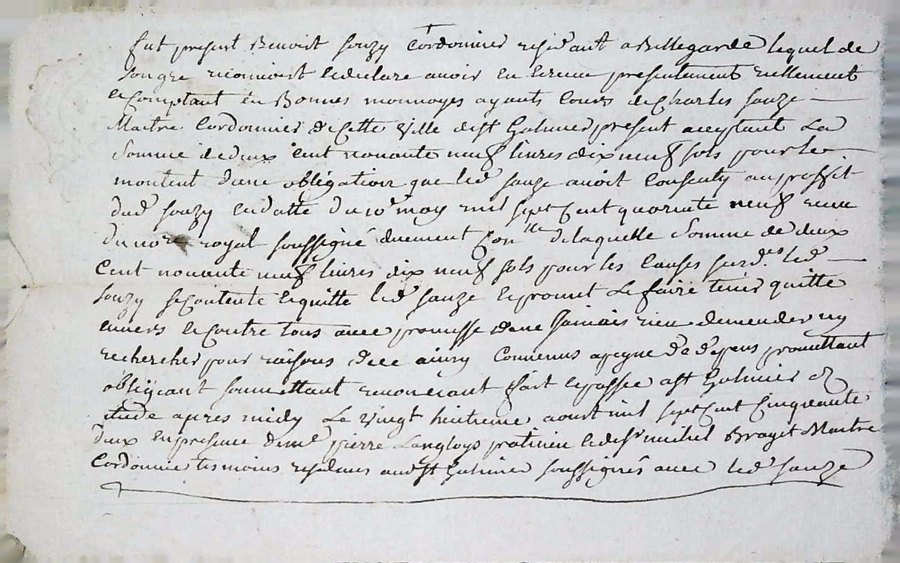 fut present Benoist Souzy Cordonnier residant a Bellegarde lequel de
son gre reconnoist & declare avoir eu & receu presentement reellement
& comptant en Bonnes monnoyes ayants cours de Charles Sauze
Maitre Cordonnier de cette ville de st Galmier present acceptant La
Somme de deux cent nonante neuf livres dix neuf sols pour le
montent dune obligation que led sauze avoit consenty au proffit
dud souzy en datte du 10e may mil sept cent quarante neuf receu
du no.re royal soussigné duement Con.llé de laquelle Somme de deux
Cent nonante neuf livres dix neuf sols pour les causes susd.es led
souzy se contente & quitte led sauze & promet Le faire tenir quitte
envers & contre tous avec promesse den Jamais rien demender ny
rechercher pour raisons de ce ainsy convenus a peyne de depens promettant
obligeant soumettant renonceant fait & passé a st Galmier
etude apres midy Le vingt huitieme aoust mil sept cent cinquante
deux en presence de me pierre Langloys praticien & de sr michel Brayet Maitre
Cordonnier tesmoins residens aud st Galmier soussignés avec led sauze